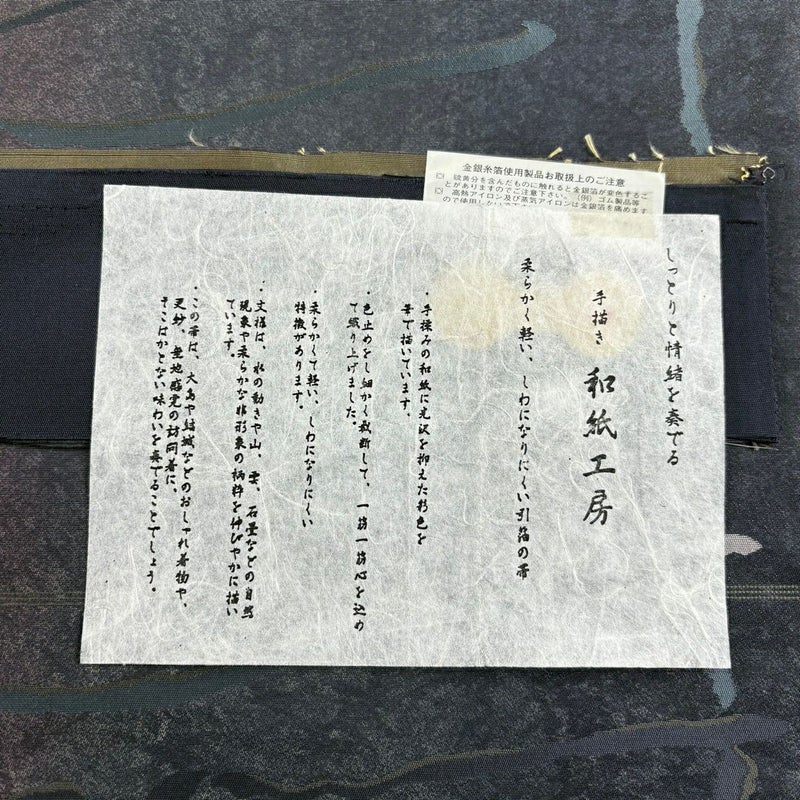 金銀糸箔使用製品お取扱上のご注意
硫黄分を含んだものに触れると金銀箔が変色するこ
とがありますのでご注意下さい。(例)ゴム製品等
高熱アイロン及び蒸気アイロンは金銀箔を痛めます
ので使用しないで下
しっとりと情緒を奏でる
手描き 和紙工房
柔らかく軽い、しわになりにくい引箔の帯
・手揉みの和紙に光沢を抑えた彩色を
筆で描いています。
・色止めをし細かく裁断して、一筋一筋心を込め
て織り上げました。
・柔らかくて軽い、しわになりにくい
特徴があります。
・文様は、水の動きや山、雲、石畳などの自然
現象や柔らかな非形象の柄粋を伸びやかに描い
ています。
・この帯は、大島や結城などのおしゃれ着物や、
更紗、無地感覚の訪問着に、
そこはかとない味わいを奏でることでしょう。